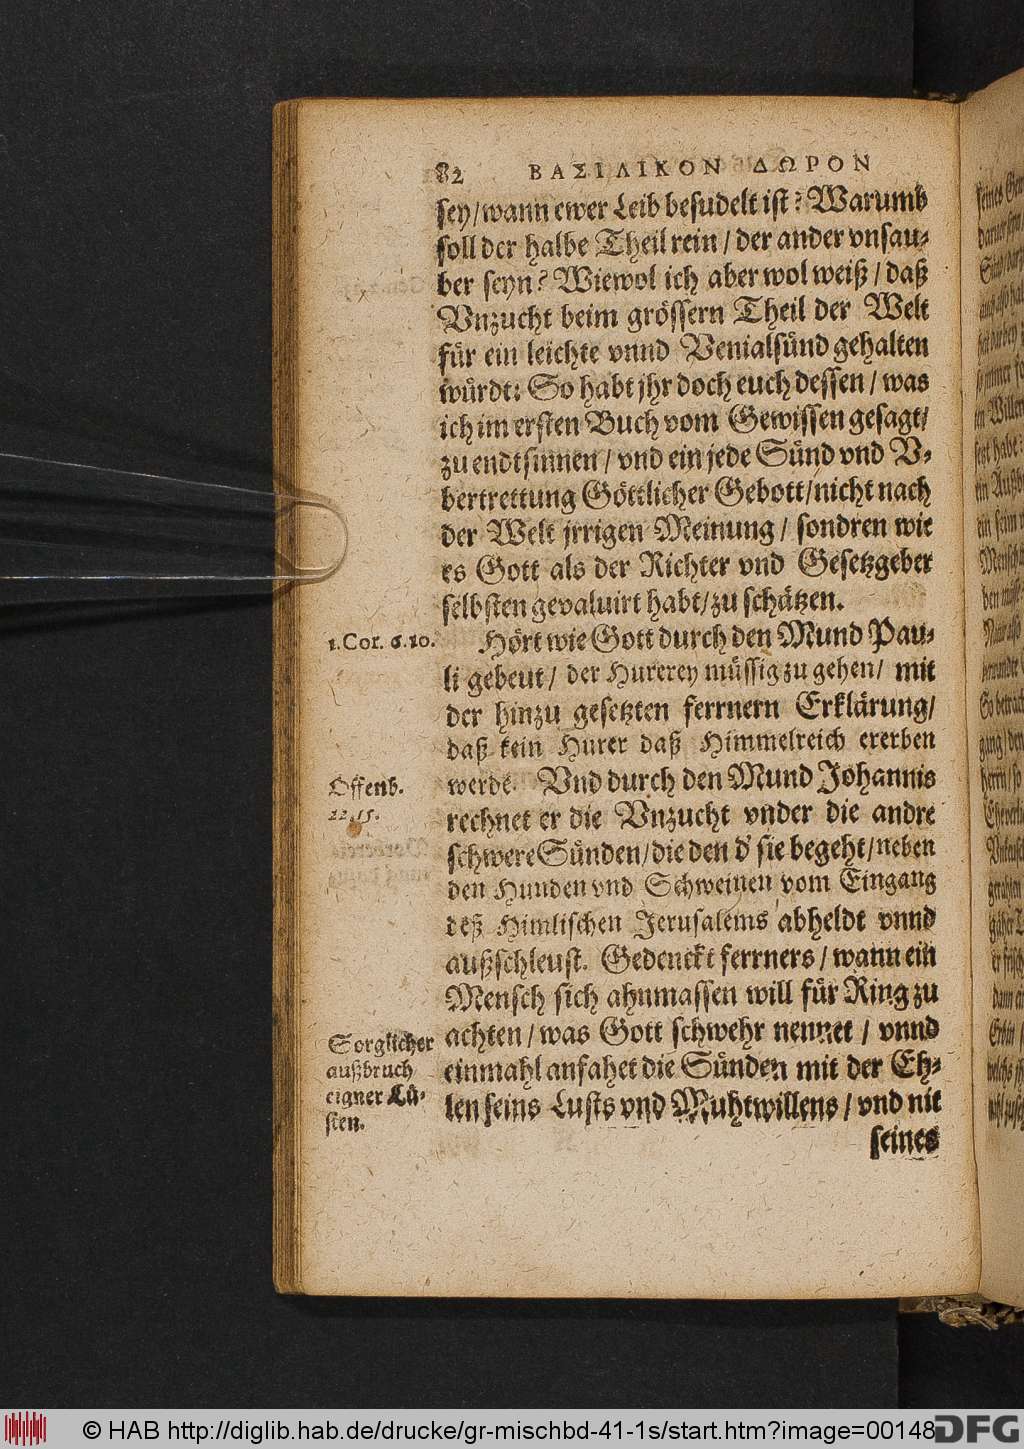 82 ΒΑΣΙΛΙΚΟΝ ΔΩΡΟΝ
sey/wann ewer Leib besudelt ist? Warumb
soll der halbe Theil rein / der ander vnsau-
ber seyn? Wiewol ich aber wol weiß / daß
Vnzucht beim grössern Theil der Welt
für ein leichte vnnd Venialsünd gehalten
würdt: So habt jhr doch euch dessen / was
ich im ersten Buch vom Gewissen gesagt/
zu endtsinnen / vnd ein jede Sünd vnd V-
bertrettung Göttlicher Gebott/nicht nach
der Welt jrrigen Meinung / sondren wie
es Gott als der Richter vnd Gesetzgeber
selbsten gevaluirt habt/zu schätzen.
1. Cor. 6. 10.
Hört wie Gott durch den Mund Pau-
li gebeut / der Hurerey müssig zu gehen / mit
der hinzu gesetzten ferrnern Erklärung/
daß kein Hurer daß Himmelreich ererben
Offenb.
22. 15.
werde. Vnd durch den Mund Johannis
rechnet er die Vnzucht vnder die andre
schwere Sünden/die den d' sie begeht/neben
den Hunden vnd Schweinen vom Eingang
deß Himlischen Jerusalems abheldt vnnd
außschleust. Gedenckt ferrners / wann ein
Mensch sich ahnmassen will für Ring zu
Sorglicher
außbruch
eigner Lü-
sten.
achten / was Gott schwehr nennet / vnnd
einmahl anfahet die Sünden mit der Eh-
len seins Lusts vnd Muhtwillens / vnd nit
seines
© HAB http://diglib.hab.de/drucke/gr-mischbd-41-1s/start.htm?image=00148
DFG